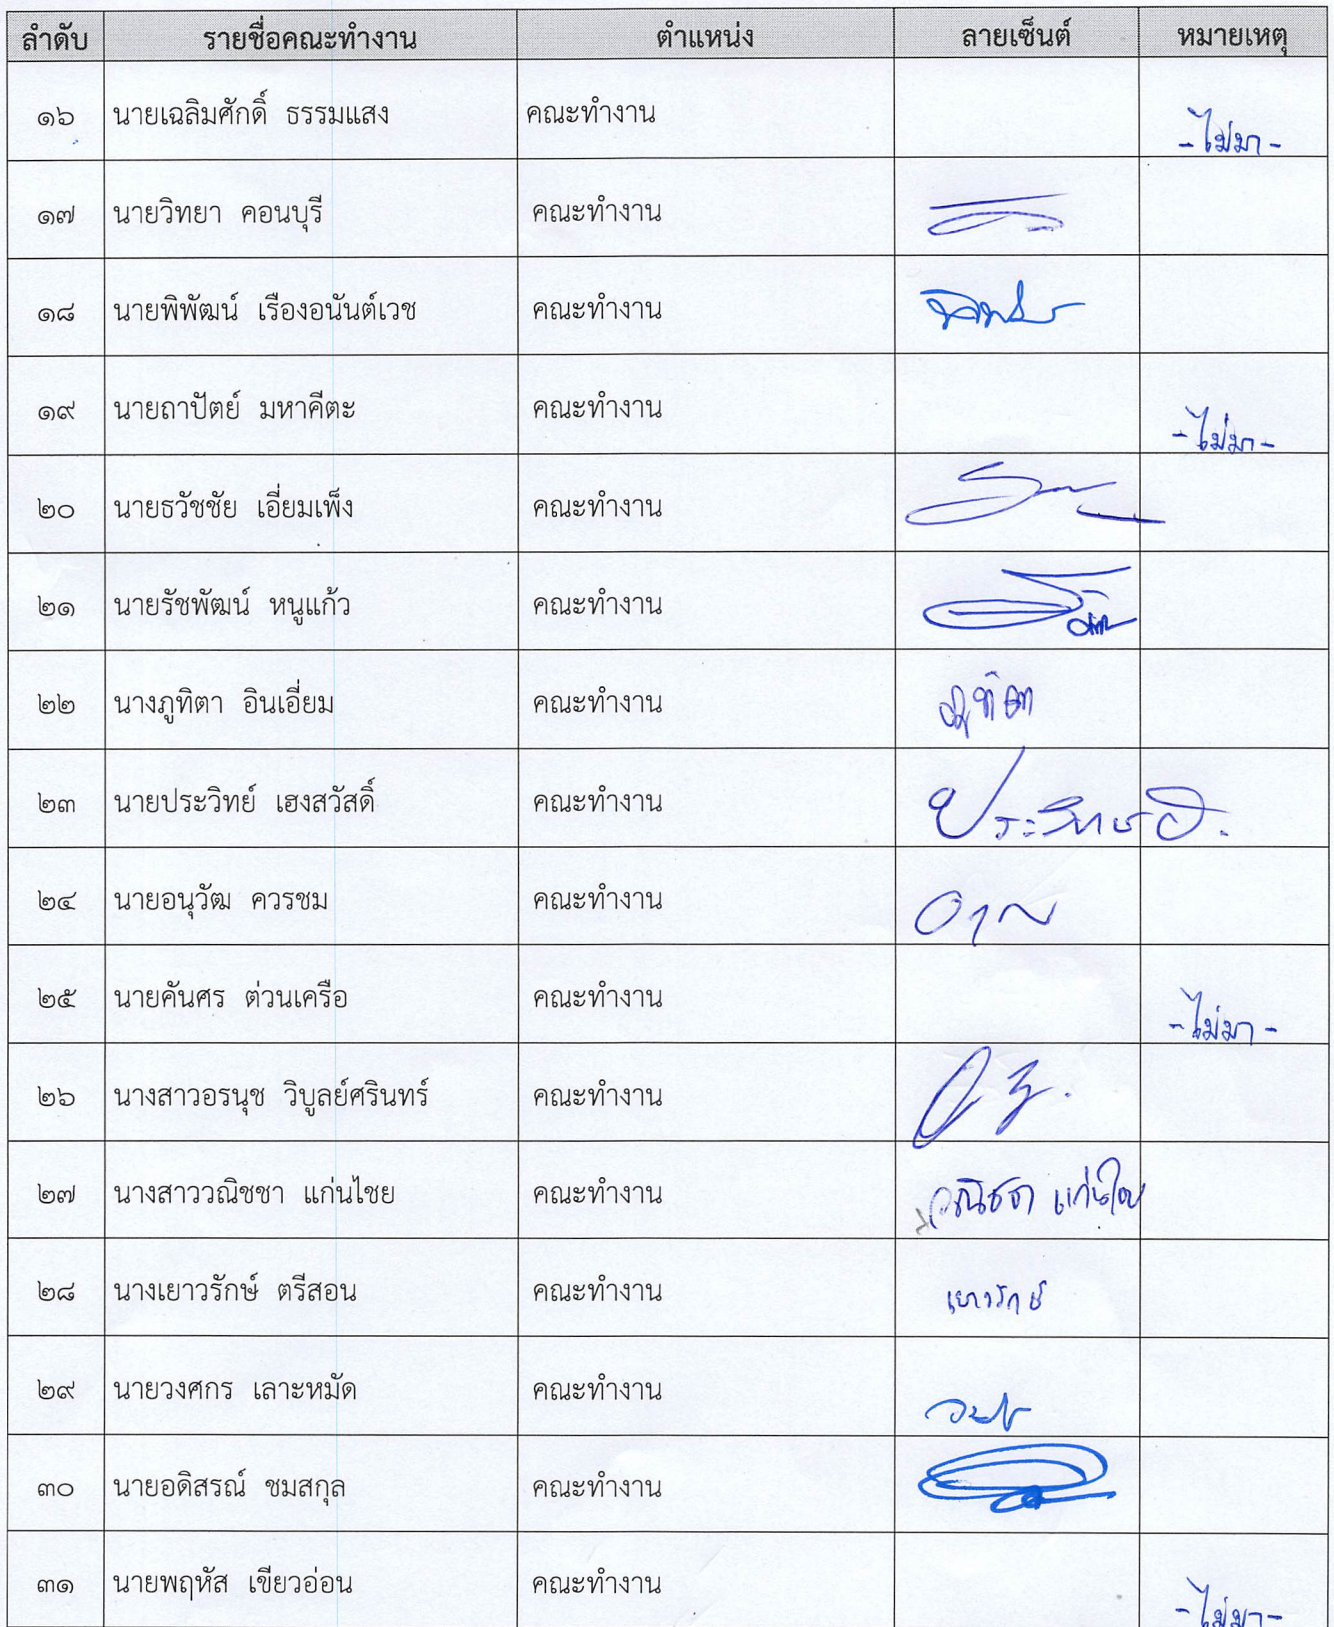 ลำดับ รายชื่อคณะทำงาน ตำแหน่ง ลายเซ็นต์ หมายเหตุ
๑๖ นายเฉลิมศักดิ์ ธรรมแสง คณะทำงาน -ไม่มา-
๑๗ นายวิทยา คอนบุรี คณะทำงาน
๑๘ นายพิพัฒน์ เรืองอนันต์เวช คณะทำงาน
๑๙ นายถาปัตย์ มหาคีตะ คณะทำงาน -ไม่มา-
๒๐ นายธวัชชัย เอี่ยมเพ็ง คณะทำงาน
๒๑ นายรัชพัฒน์ หนูแก้ว คณะทำงาน
๒๒ นางภูทิตา อินเอี่ยม คณะทำงาน ภูทิตา
๒๓ นายประวิทย์ เฮงสวัสดิ์ คณะทำงาน
๒๔ นายอนุวัฒ ควรชม คณะทำงาน
๒๕ นายคันศร ต่วนเครือ คณะทำงาน -ไม่มา-
๒๖ นางสาวอรนุช วิบูลย์ศรินทร์ คณะทำงาน
๒๗ นางสาววณิชชา แก่นไชย คณะทำงาน วณิชชา แก่นไชย
๒๘ นางเยาวรักษ์ ตรีสอน คณะทำงาน เยาวรักษ์
๒๙ นายวงศกร เลาะหมัด คณะทำงาน
๓๐ นายอดิสรณ์ ชมสกุล คณะทำงาน
๓๑ นายพฤหัส เขียวอ่อน คณะทำงาน -ไม่มา-